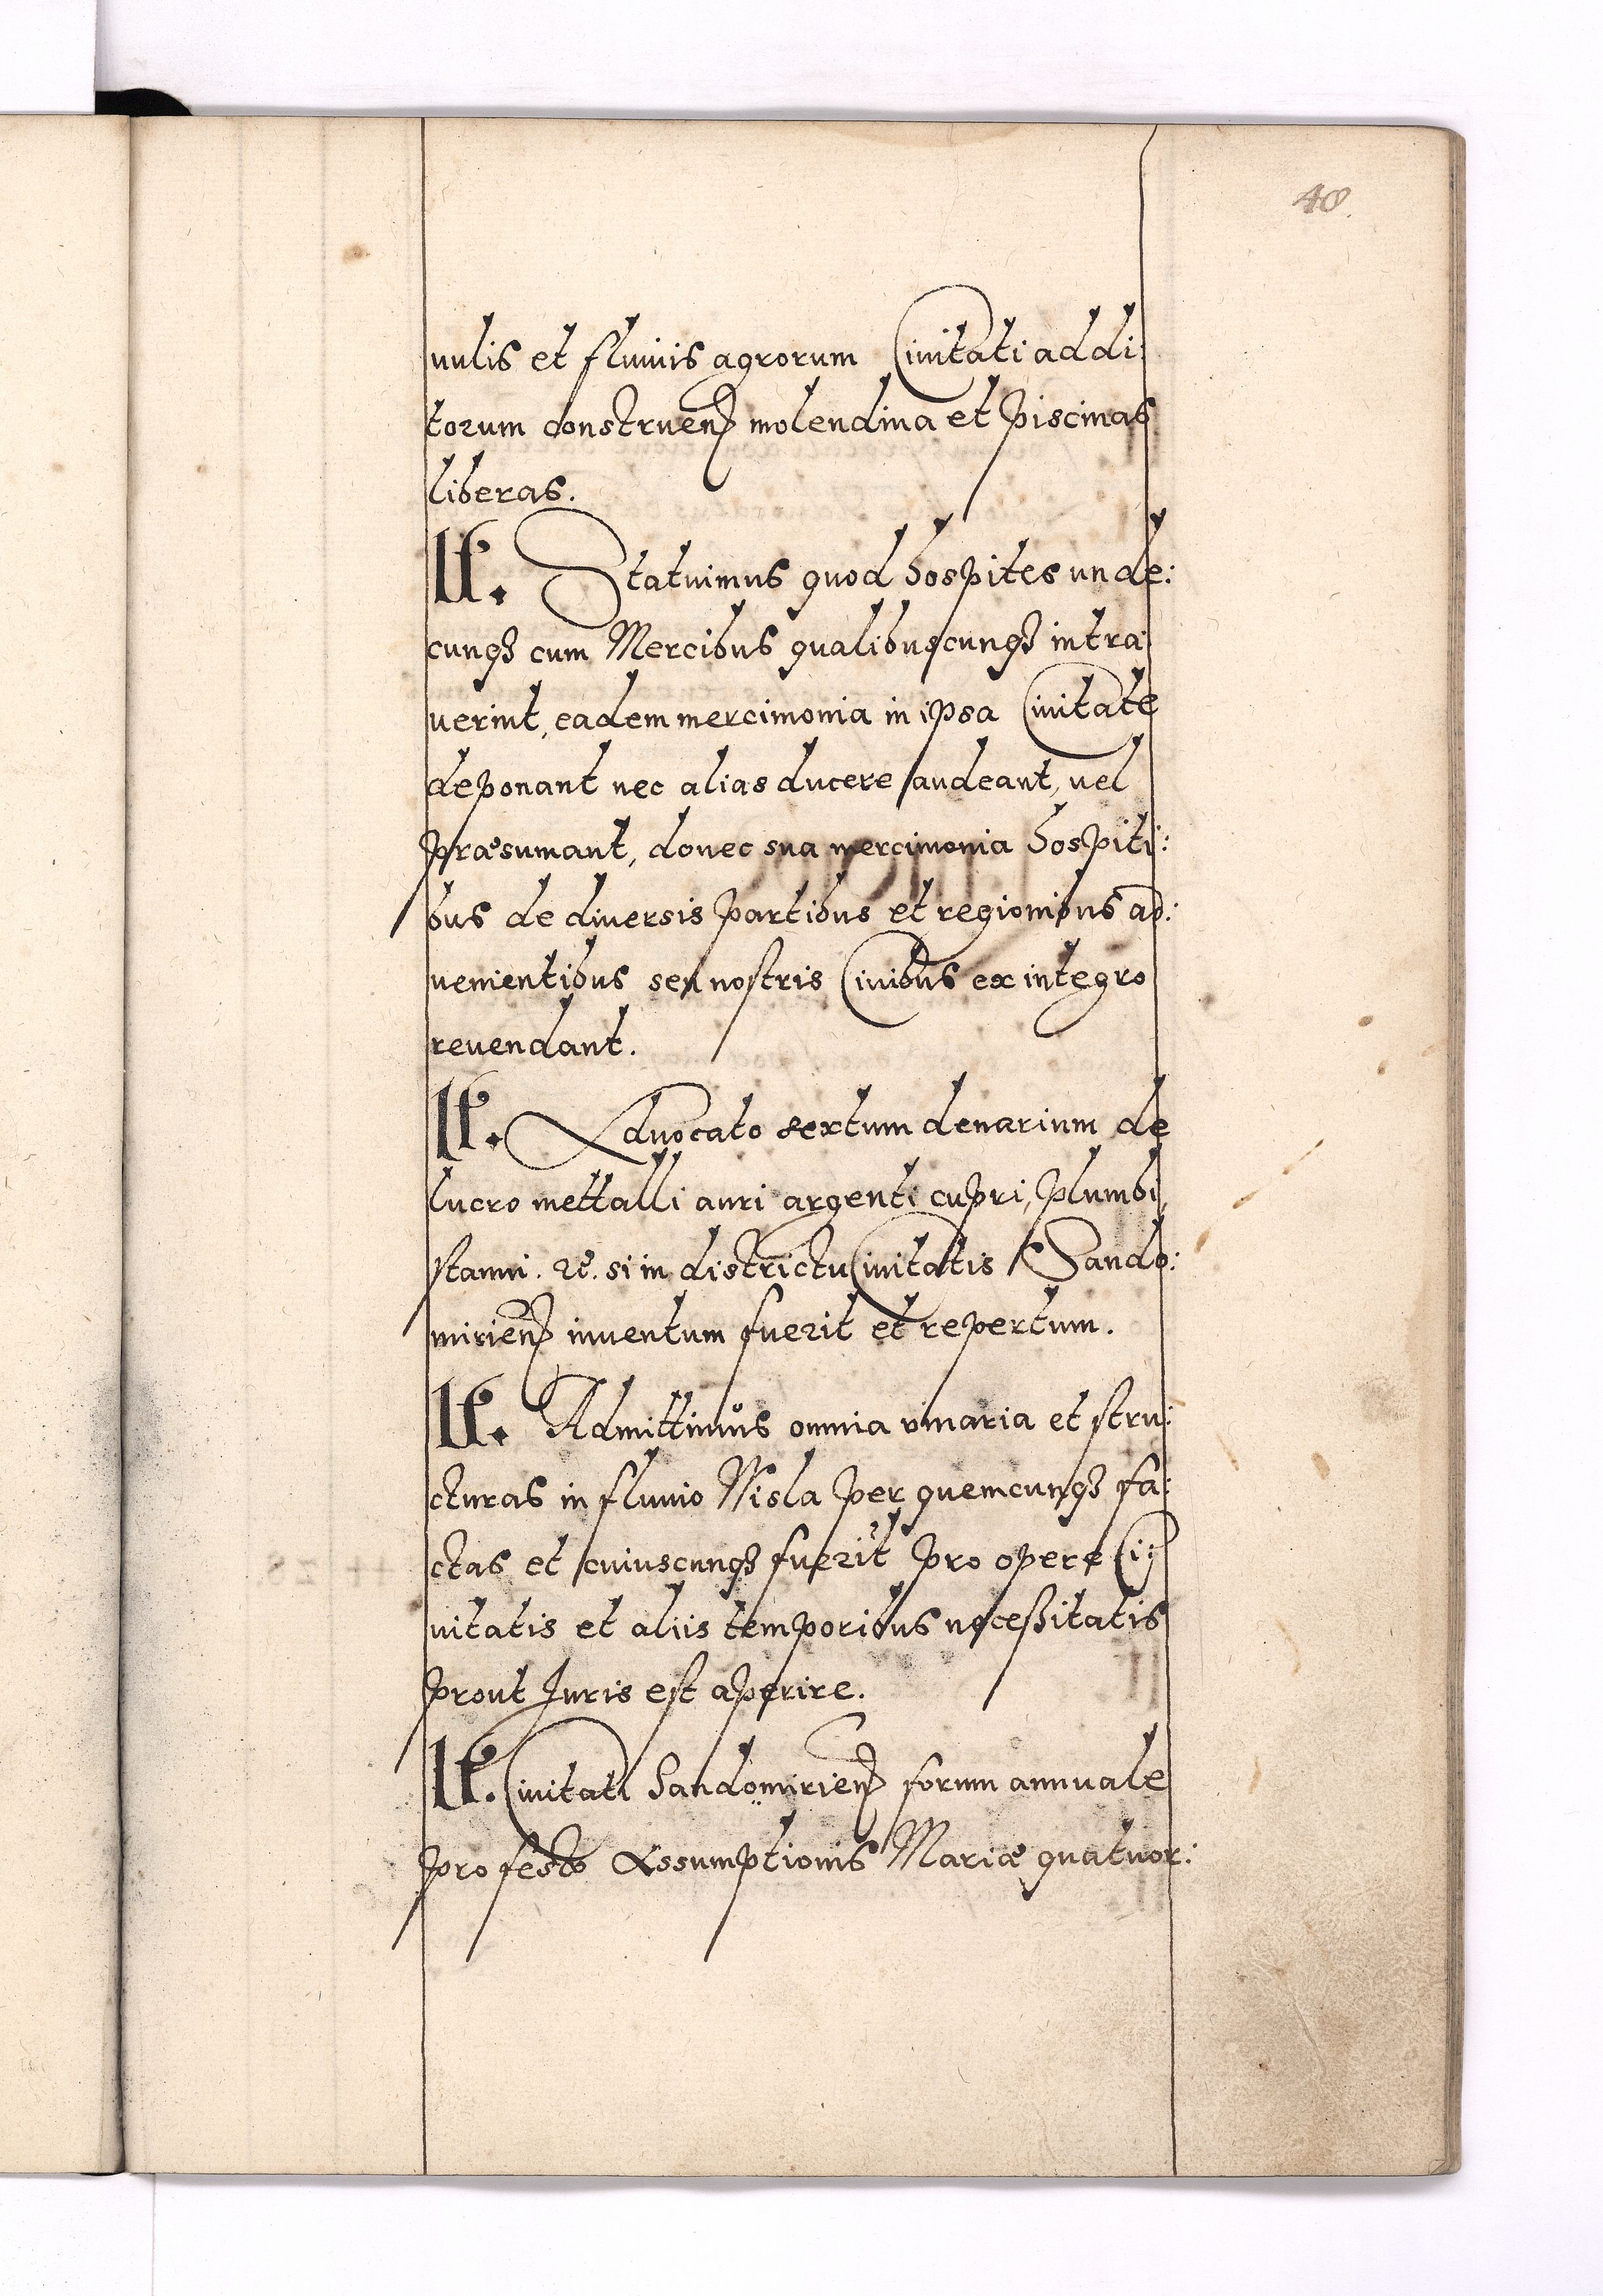 40.
uulis et fluuiis agrorum Ciuitati addi:
torum construen⁊ molendina et piscinas
liberas.
It. Statuimus quod hospites unde:
cunqȝ cum Mercibus qualibuscunqȝ intra:
uerint, eadem mercimonia in ipsa Ciuitate
deponant nec alias ducere audeant, uel
præsumant, donec sua mercimonia hospiti:
bus de diuersis partibus et regionibus ad:
uenientibus seu nostris Ciuibus ex integro
reuendant.
It. Aduocato sextum denarium de
lucro mettalli auri argenti cupri, plumbi,
stanni. &c. si in districtu Ciuitatis Sando:
mirien⁊ inuentum fuerit et repertum.
It. Admittimus omnia uinaria et stru:
cturas in fluuio Wisla per quemcunqȝ fa:
ctas et cuiuscunqȝ fuerit pro opere Ci:
uitatis et aliis temporibus neceßitatis
prout Juris est aperire.
It. Ciuitati Sandomirien⁊ forum annuale
pro festo Assumptionis Mariæ quatuor: